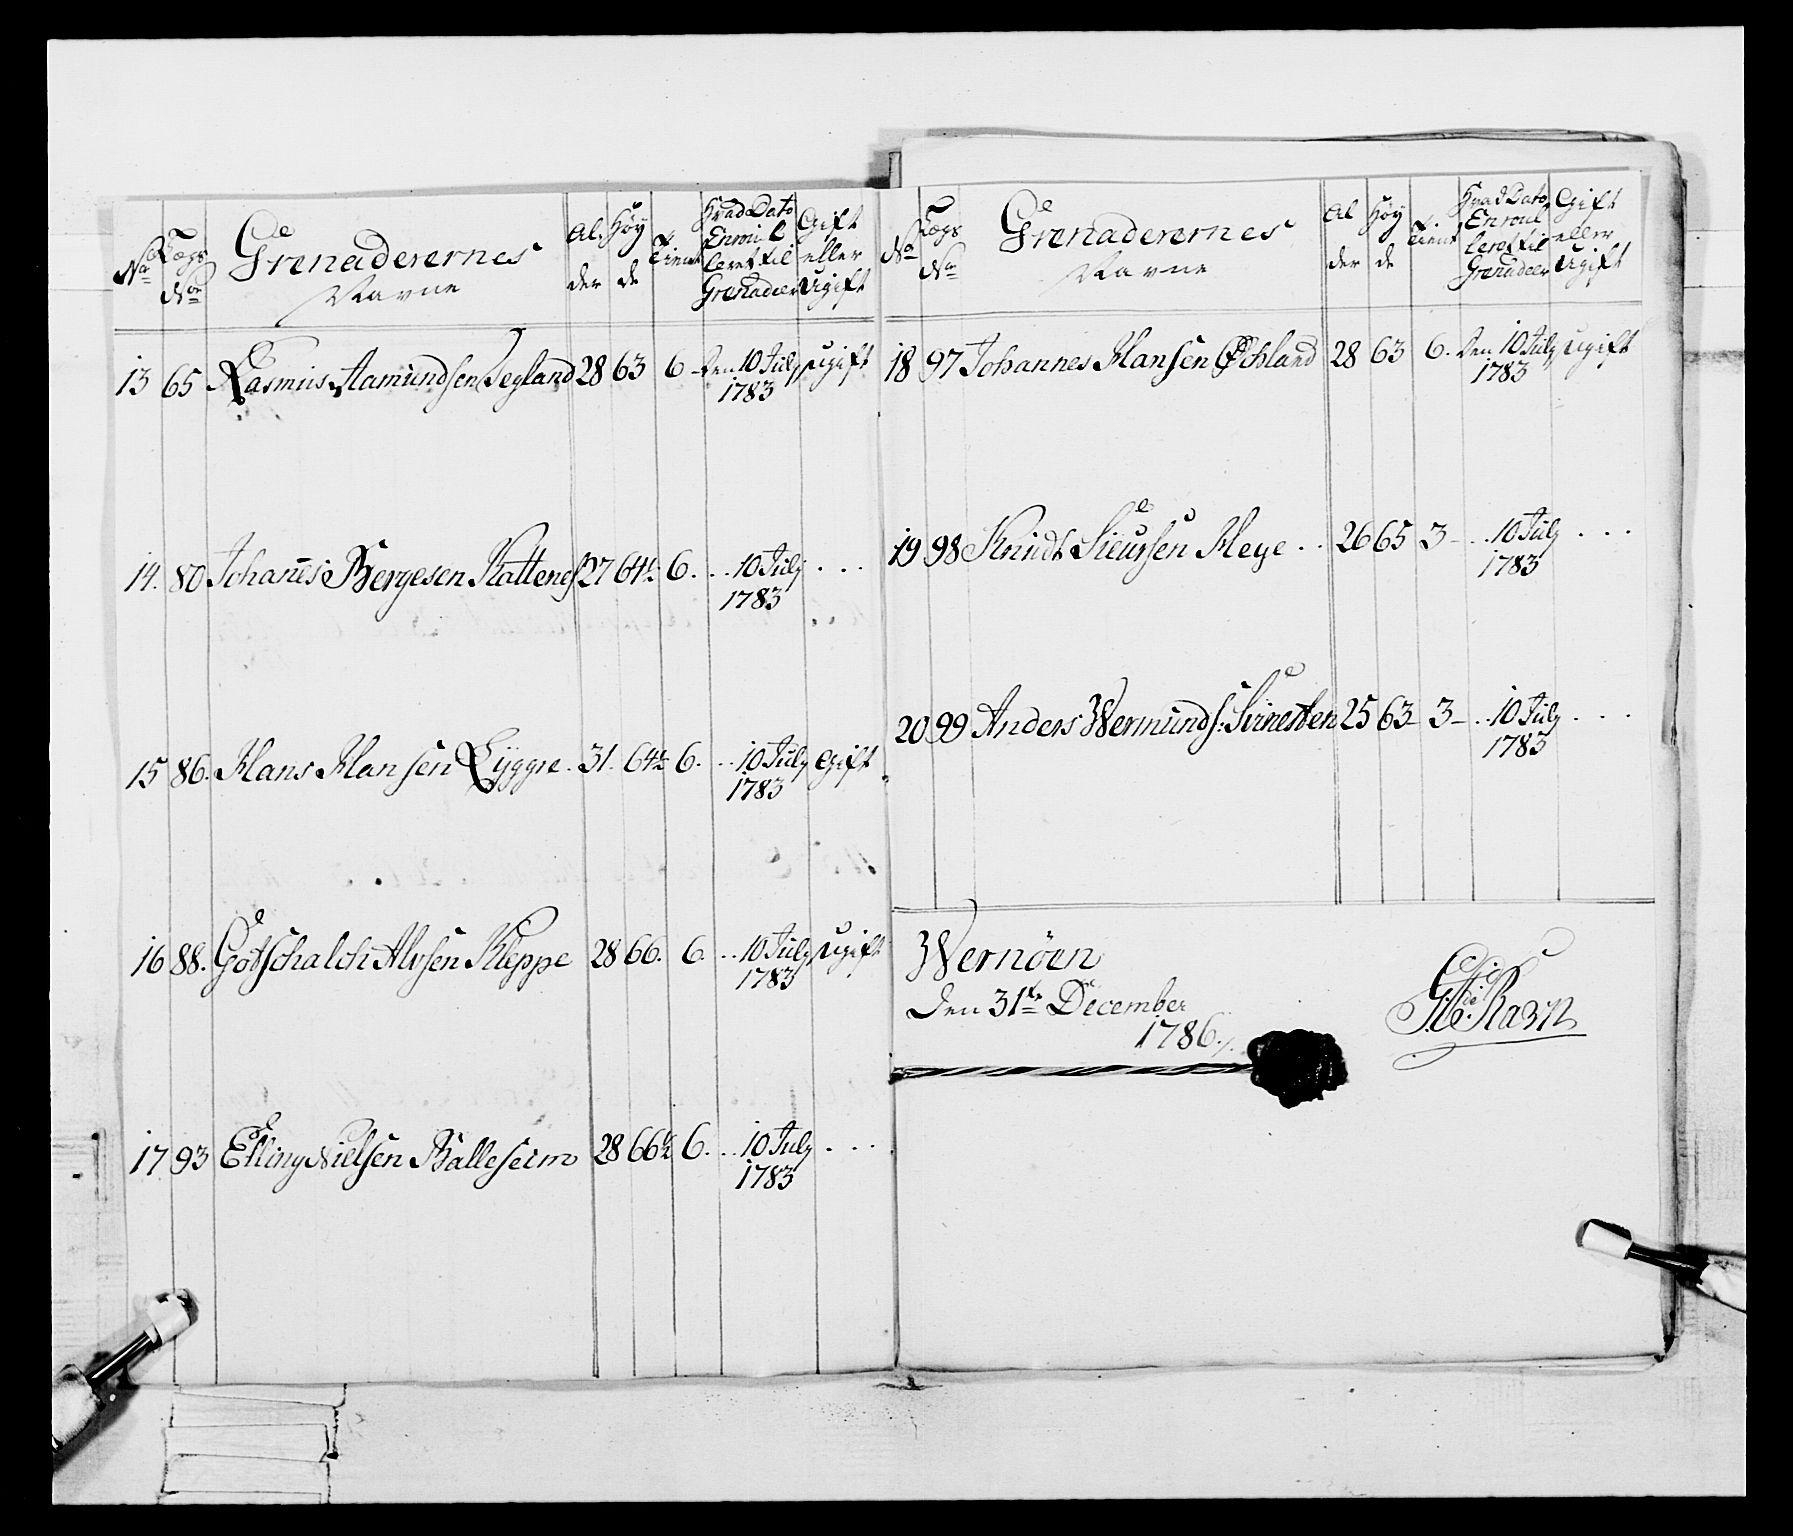 No Lægs No Grenaderernes Navne Al der Høy de Tient Hvad Dato Enroul leret til Grenadeer Gift eller Ugift
13 65 Rasmus Aamundsen Segland 28 63 6 - Den 10 July 1783 Ugift
14. 80 Johanes Bergesen Nattenes 27 64½ 6. .. 10 July 1783 ...
15 86. Hans Hansen Lyggre. 31. 64½ 6. .. 10 July 1783 Gift
16 88. Gotschalch Alvsen Kleppe 28 66. 6. .. 10 July 1783 Ugift
17 93 Elling Nielsen Balleseim 28 66½ 6. .. 10 July 1783 ...
No Lægs No Grenaderernes Navne Al der Høy de Tient Hvad Dato Enroul leret til Grenadeer Gift eller Ugift
18 97 Johannes Hansen Øchland 28 63 6. Den 10 July 1783 Ugift
19 98 Knudt Sieursen Heye .. 26 65 3 - .. 10 July 1783 ...
20 99 Anders Wermunds: 25 63 - 3 - .. 10 July 1783 ...
Wernøen
Den 31te December
1786./.
Ravn